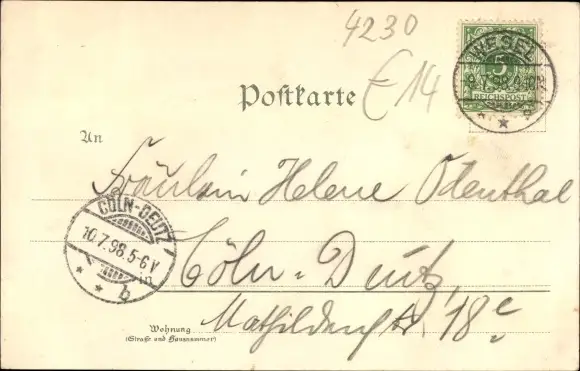 4230
E 14
WESEL
9.7.98.
5
REICHSPOST
Postkarte
An
Fräulein Helene Odenthal
CÖLN-DEUTZ
10.7.98.5-6V
b
in Cöln-Deutz,
Mathildenstr. 18c
Wohnung
(Straße und Hausnummer)